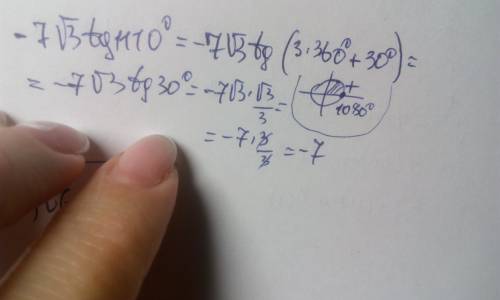 -7√3 tg1110° = -7√3 tg (3·360° + 30°) =
= -7√3 tg30° = -7√3 · √3/3 =
+
1080°
= -7 · 3/3 = -7